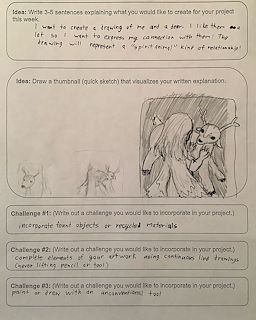 Idea: Write 3-5 sentences explaining what you would like to create for your project
this week.
I want to create a drawing of me and a deer. I like them a
lot so I want to express my connection with them! The
drawing will represent a "spirit animal" kind of relationship!
Idea: Draw a thumbnail (quick sketch) that visualizes your written explanation.
Challenge #1: (Write out a challenge you would like to incorporate in your project.)
incorporate found objects or recycled materials
Challenge #2: (Write out a challenge you would like to incorporate in your project.)
complete elements of your artwork using continuous line drawings
(never lifting pencil or tool)
Challenge #3: (Write out a challenge you would like to incorporate in your project.)
paint or draw with an unconventional tool